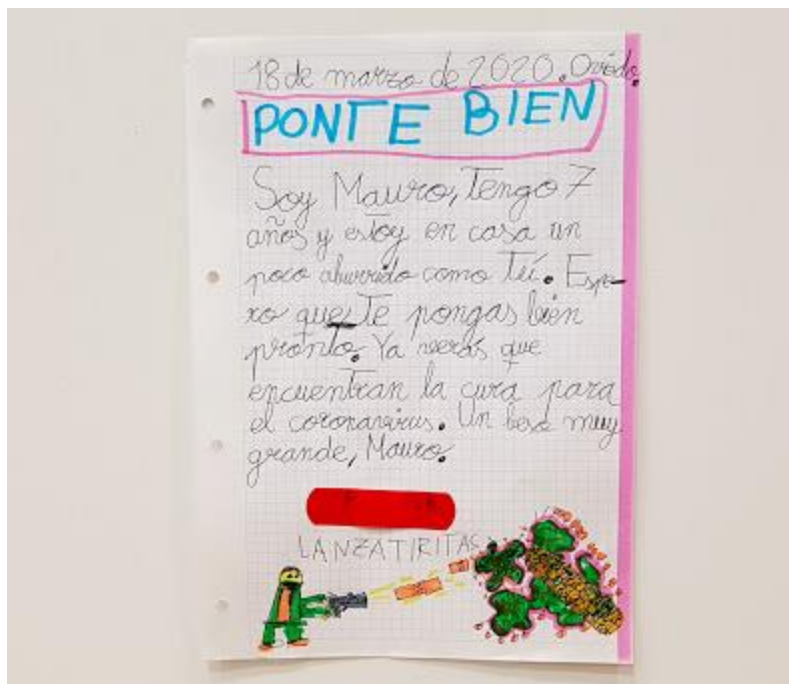 18 de marzo de 2020. Oviedo.
PONTE BIEN
Soy Mauro, Tengo 7
años y estoy en casa un
poco aburrido como Tú. Espe-
ro que Te pongas bien
pronto. Ya veerás que
encuentran la cura para
el coronavirus. Un beso muy
grande, Mauro.
LANZATIRITAS